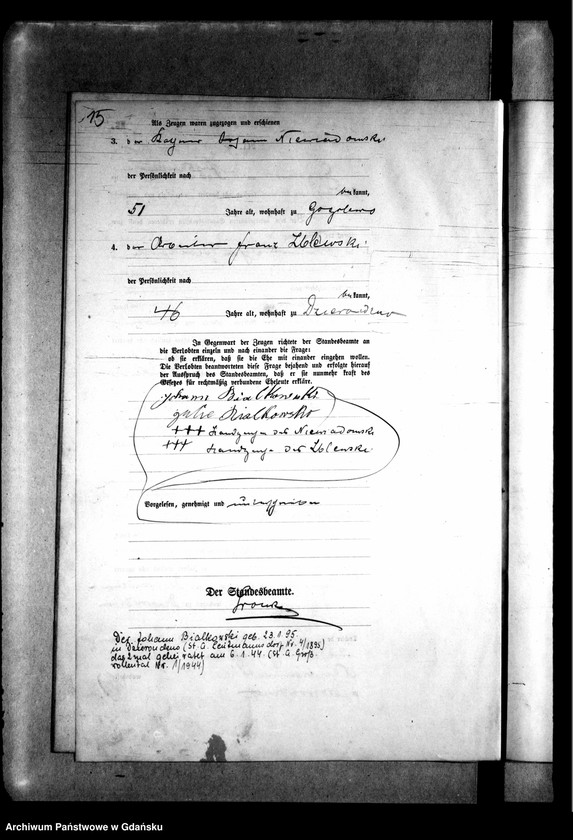 15
Als Zeugen waren zugezogen und erschienen
3. der Niewiadomski
der Persönlichkeit nach
be kannt,
51 Jahre alt, wohnhaft zu Gogolewo
4. der Arbeiter Franz Zblewski
der Persönlichkeit nach
be kannt,
46 Jahre alt, wohnhaft zu
In Gegenwart der Zeugen richtete der Standesbeamte an
die Verlobten einzeln und nach einander die Frage:
ob sie erklären, daß sie die Ehe mit einander eingehen wollen.
Die Verlobten beantworteten diese Frage bejahend und erfolgte hierauf
der Ausspruch des Standesbeamten, daß er sie nunmehr kraft des
Gesetzes für rechtmäßig verbundene Eheleute erkläre.
Johann Bialkowski
Bialkowsko
+++ Handzeichen des Niewiadomski
+++ Handzeichen des Zblewski
Vorgelesen, genehmigt und unterschrieben
Der Standesbeamte.
Der Johann Bialkowski geb. 23.1.95.
in (St. A. Nr. 4/1895)
das 2 mal geheiratet am 6.1.44. (St. A. Groß
wollental Nr. 1/1944)
Archiwum Państwowe w Gdańsku